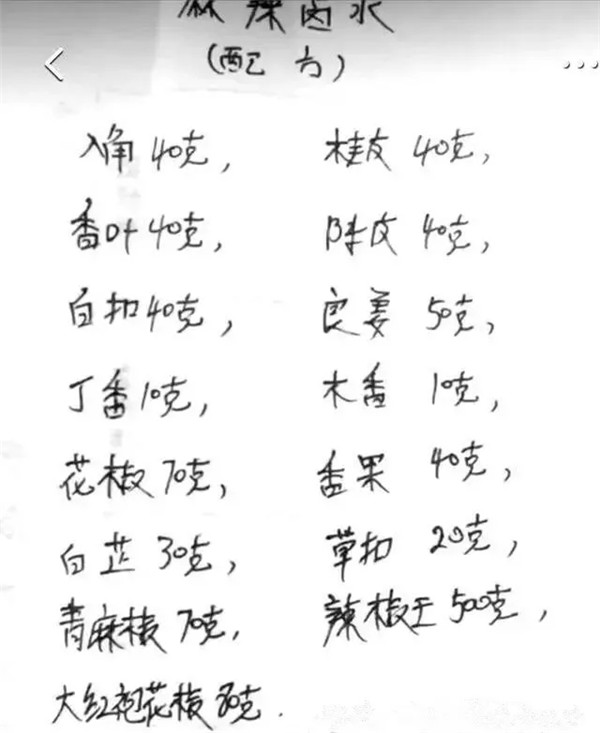 麻辣卤水
(配方)
八角40克, 桂皮40克,
香叶40克, 陈皮40克,
白扣40克, 良姜50克,
丁香10克, 木香10克,
花椒70克, 香果40克,
白芷30克, 草扣20克,
青麻椒70克, 辣椒王500克,
大红袍花椒80克.